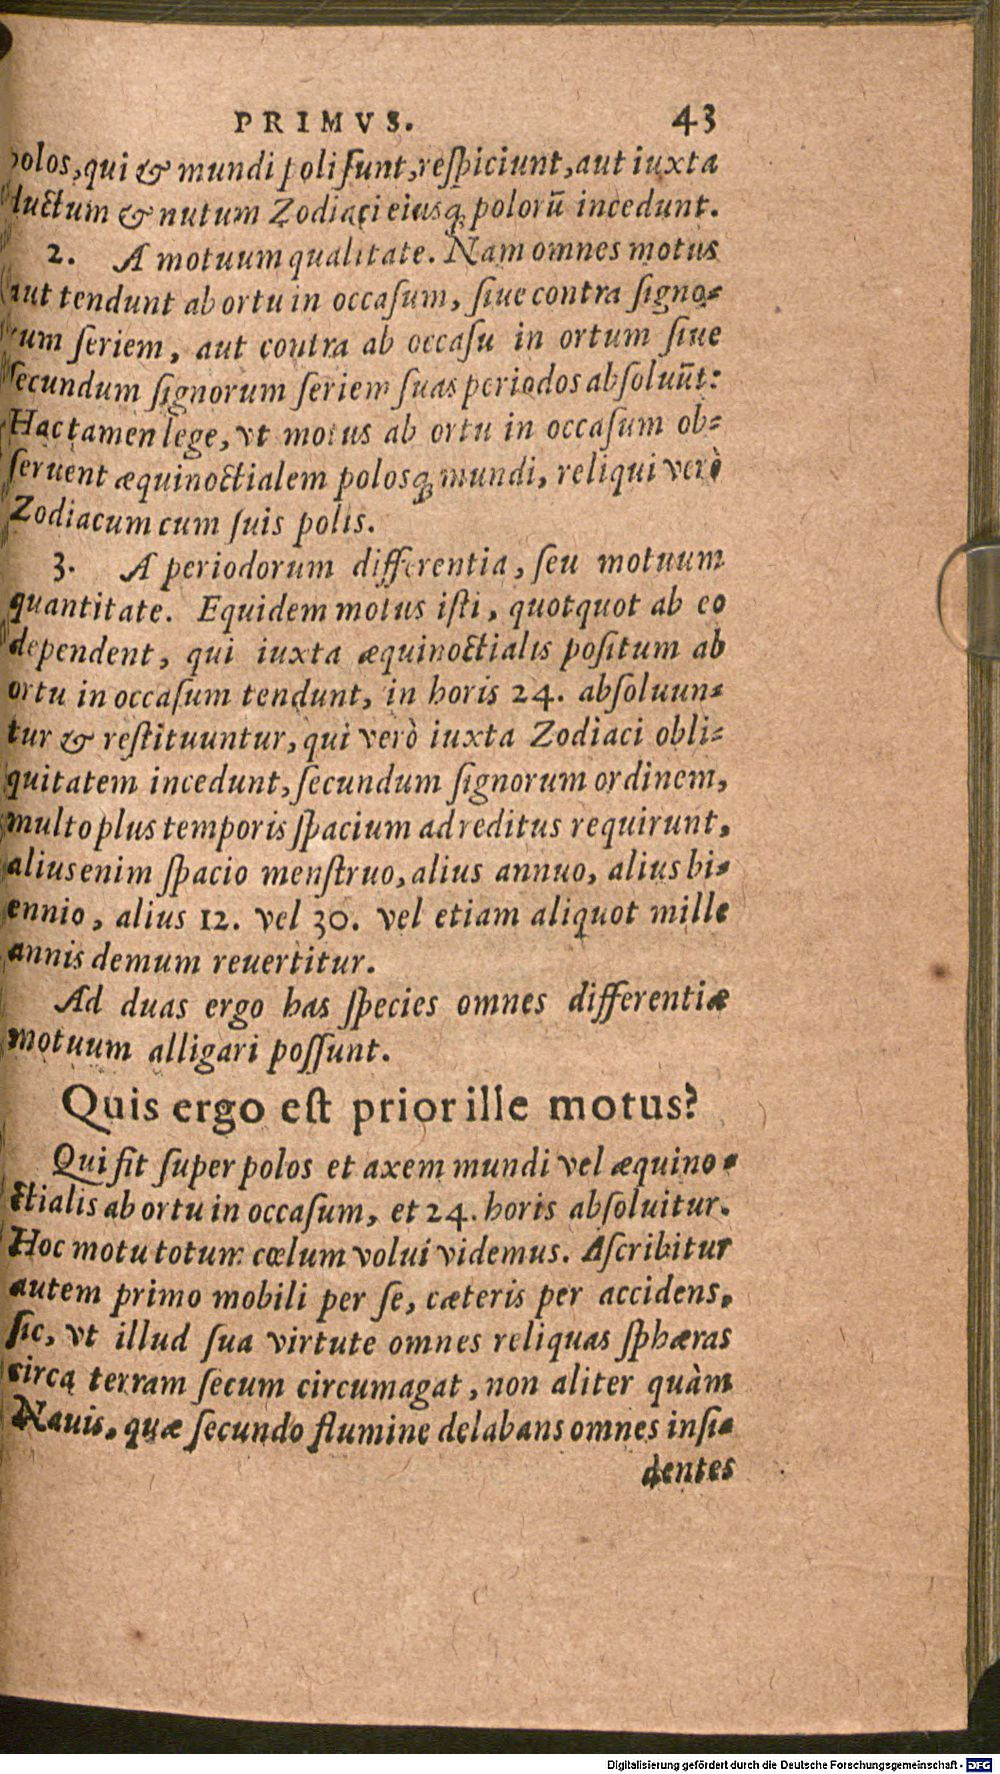 PRIMVS. 43
polos, qui & mundi poli ſunt, reſpiciunt, aut iuxta
ductum & nutum Zodiaci eiusq́; polorū incedunt.
2. A motuum qualitate. Nam omnes motus
aut tendunt ab ortu in occaſum, ſiue contra ſigno-
rum ſeriem, aut contra ab occaſu in ortum ſiue
ſecundum ſignorum ſeriem ſuas periodos abſoluūt:
Hac tamen lege, vt motus ab ortu in occaſum ob-
ſeruent æquinoctialem polosq́; mundi, reliqui verò
Zodiacum cum ſuis polis.
3. A periodorum differentia, ſeu motuum
quantitate. Equidem motus iſti, quotquot ab eo
dependent, qui iuxta æquinoctialis poſitum ab
ortu in occaſum tendunt, in horis 24. abſoluun-
tur & reſtituuntur, qui verò iuxta Zodiaci obli-
quitatem incedunt, ſecundum ſignorum ordinem,
multo plus temporis ſpacium ad reditus requirunt,
alius enim ſpacio menſtruo, alius annuo, alius bi-
ennio, alius 12. vel 30. vel etiam aliquot mille
annis demum reuertitur.
Ad duas ergo has ſpecies omnes differentiæ
motuum alligari poſſunt.
Quis ergo eſt prior ille motus?
Qui fit ſuper polos et axem mundi vel æquino-
ctialis ab ortu in occaſum, et 24. horis abſoluitur.
Hoc motu totum cœlum volui videmus. Aſcribitur
autem primo mobili per ſe, cæteris per accidens,
ſic, vt illud ſua virtute omnes reliquas ſphæras
circa terram ſecum circumagat, non aliter quàm
Nauis, quæ ſecundo flumine delabans omnes inſi-
dentes
Digitalisierung gefördert durch die Deutsche Forschungsgemeinschaft - DFG